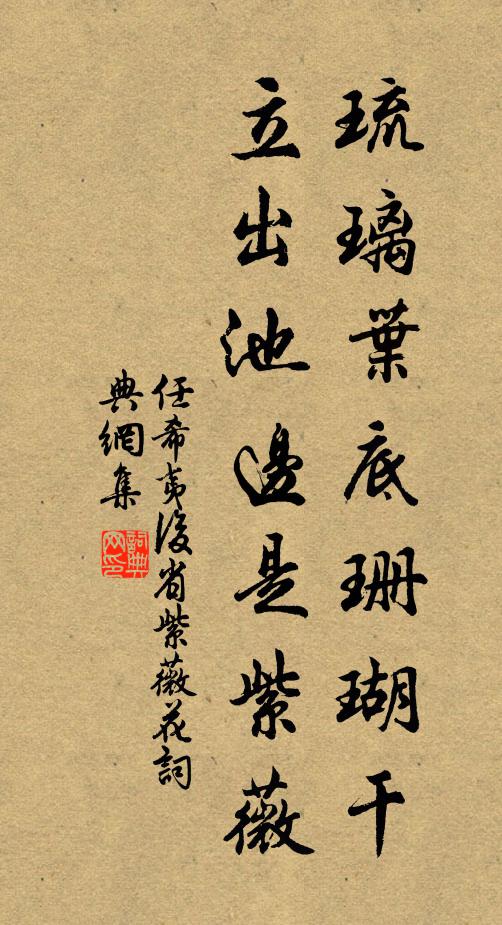 琉璃葉底珊瑚干
立出池邊是紫薇
任希夷後省紫薇花詞
典網集
詞典
网印